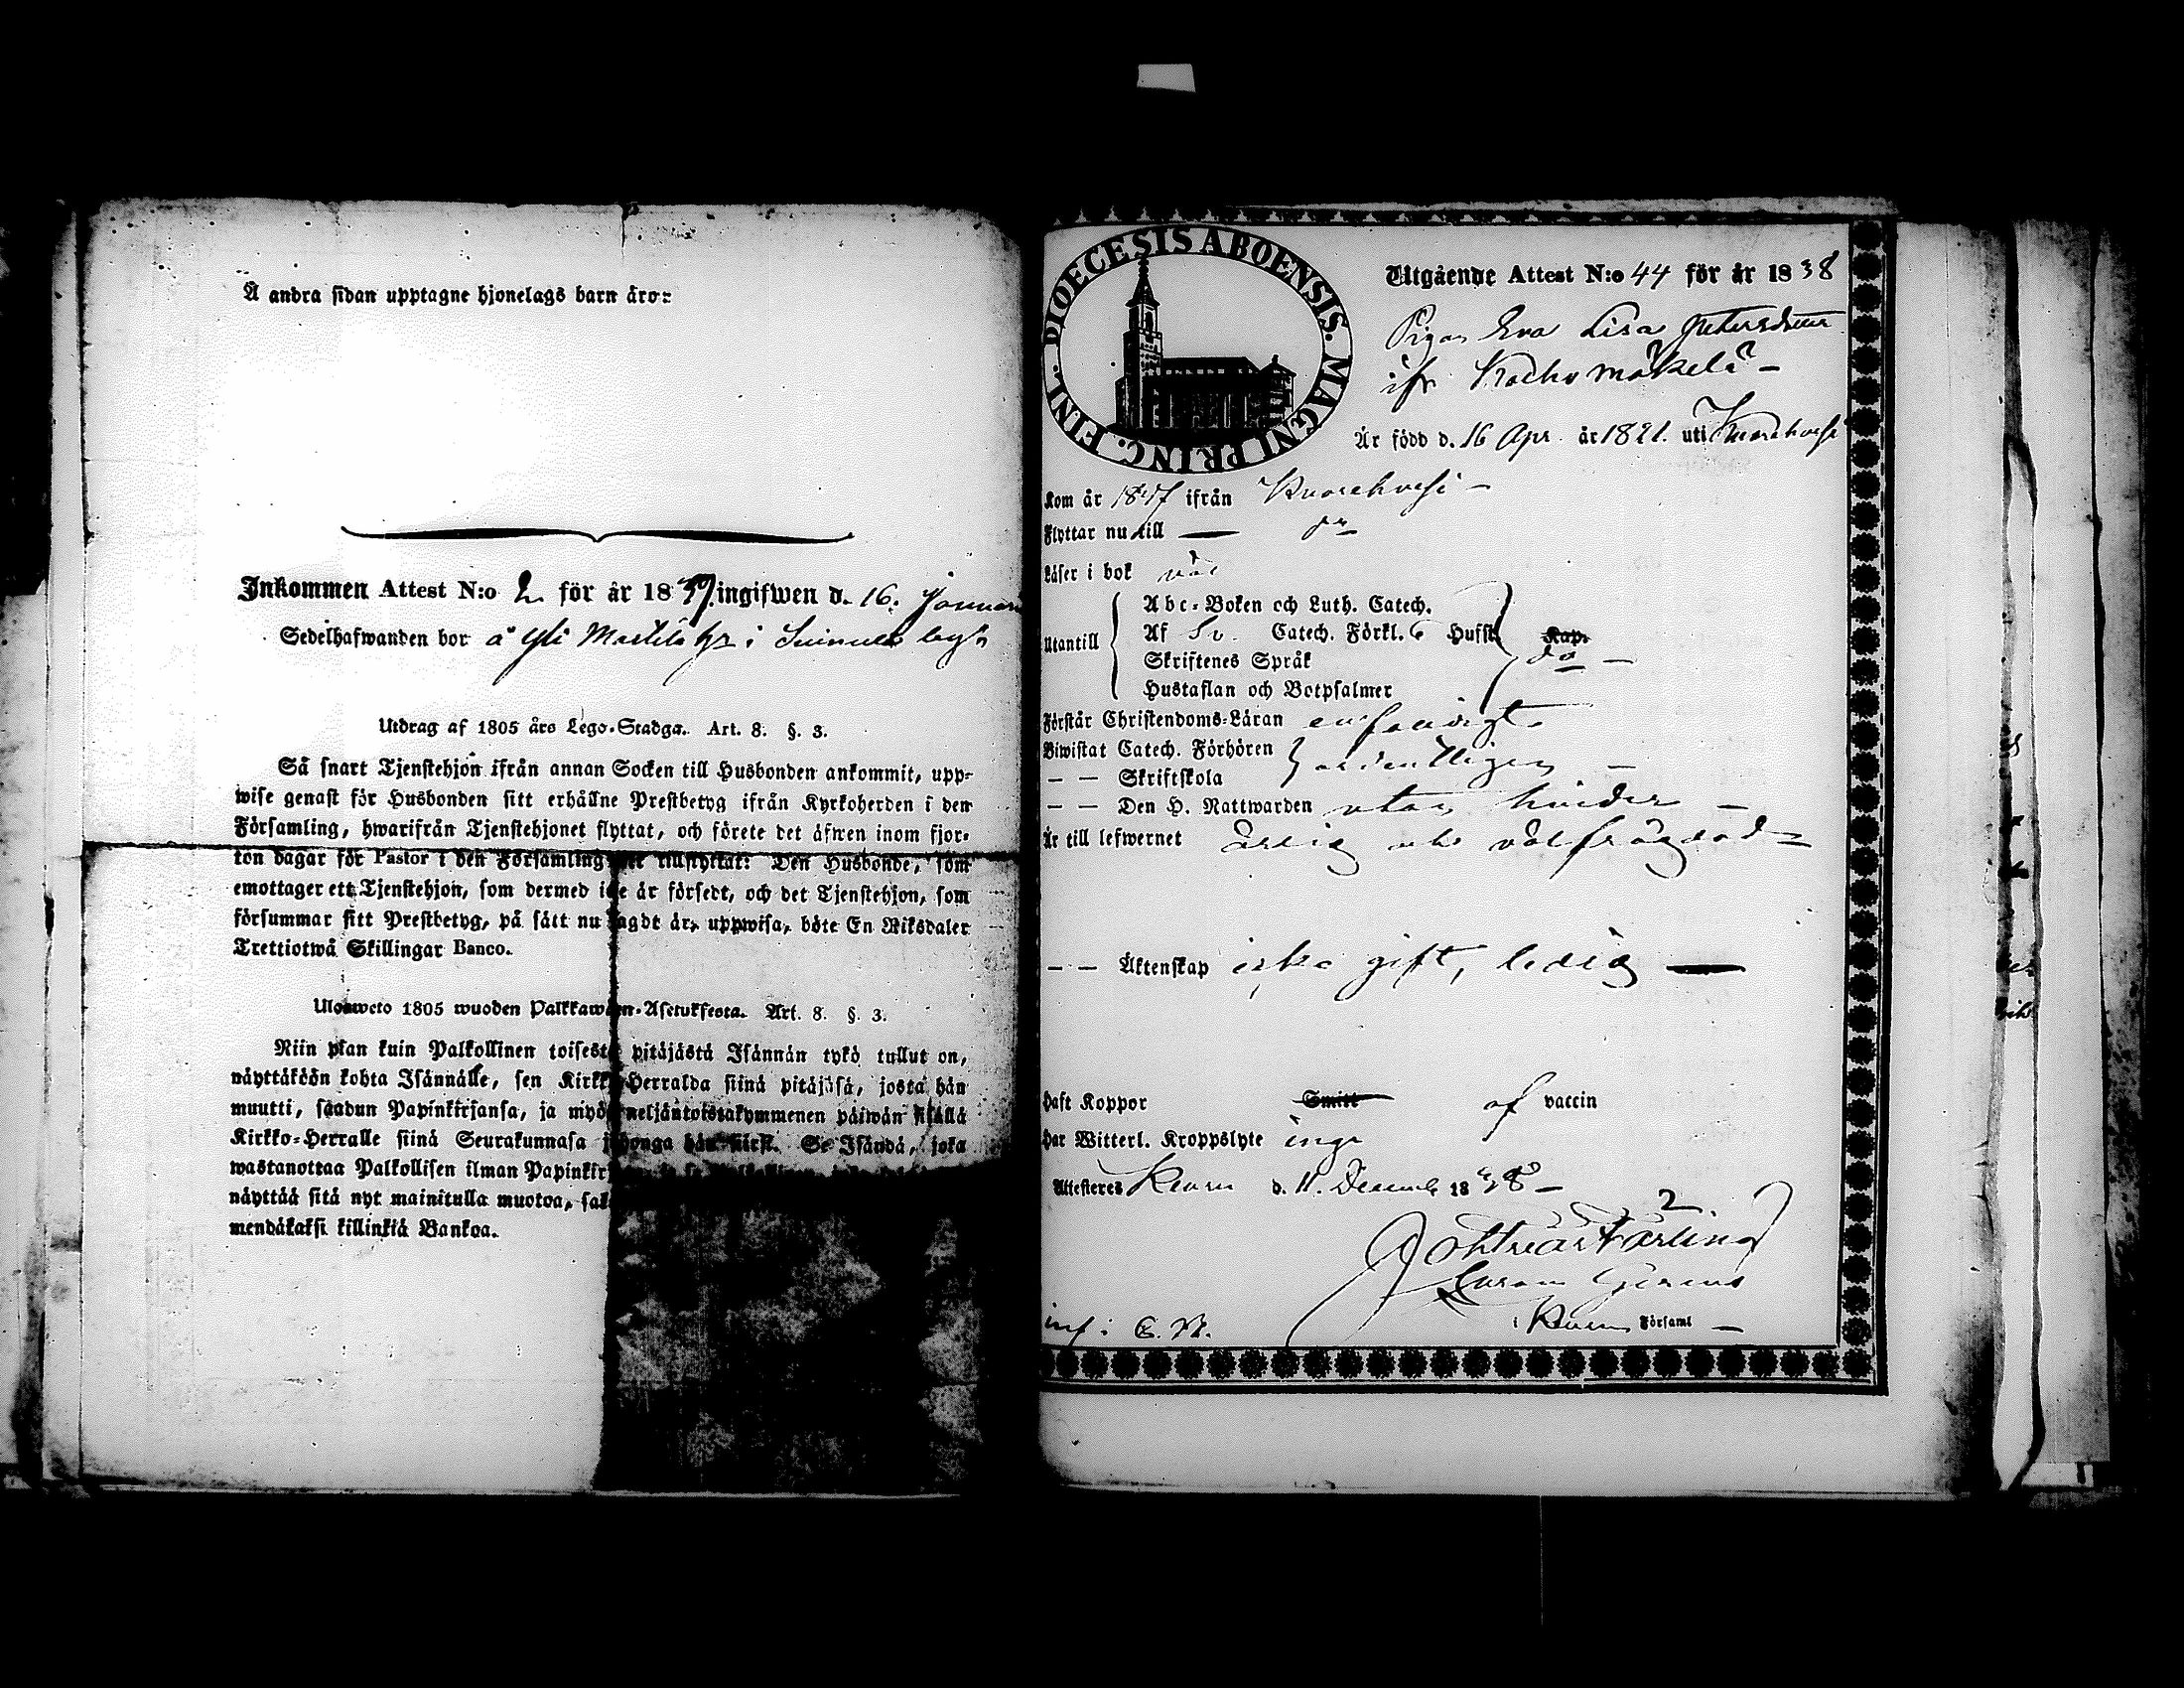 Å andra sidan upptagne hjonelags barn äro:
Inkommen Attest N:o 2 för år 1839 ingifwen d. 16. Januari
Sedelhafwanden bor å Yli Marttila by i Suinula
Utdrag af 1805 års Lego-Stadga. Art. 8. §. 3.
Så snart Tjenstehjon ifrån annan Socken till Husbonden ankommit, upp-
wise genast för Husbonden sitt erhållne Prestbetyg ifrån Kyrkoherden i den
Församling, hwarifrån Tjenstehjonet flyttat, och förete det äfwen inom fjor-
ton dagar för Pastor i den Församling tillflyttat: Den Husbonde, som
emottager ett Tjenstehjon, som dermed icke är försedt, och det Tjenstehjon, som
försummar sitt Prestbetyg, på sätt nu sagdt är, uppwisa, böte En Riksdaler
Trettiotwå Skillingar Banco.
Ulosweto 1805 wuoden Palkkawäen-Asetuksesta. Art. 8. §. 3.
Niin pian kuin Palkollinen toisesta pitäjästä Isännän tykö tullut on,
näyttäköön kohta Isännälle, sen Kirkko-Herralda siinä pitäjäsä, josta hän
muutti, saadun Papinkirjansa, ja myös neljäntoistakymmenen päiwän sisällä
Kirkko-Herralle siinä Seurakunnasa johonga hän Se Isändä, joka
wastanottaa Palkollisen ilman
näyttää sitä nyt mainitulla muotoa,
mendäkaksi killinkiä Bankoa.
DIOECESIS ABOENSIS. MAGNI PRINC. FINL.
Utgående Attest N:o 44 för år 1838
Pigan Eva Lisa
ifr
Är född d. 16 Apr. år 1821. uti Kuorehvesi
Kom år 1837 ifrån Kuorehvesi —
Flyttar nu till — do
Läser i bok väl
Utantill
Abc-Boken och Luth. Catech.
Af Sv. Catech. Förkl. 6 Hufst. Kap.
Skriftenes Språk do —
Hustaflan och Botpsalmer
Förstår Christendoms-Läran enfaldigt
Biwistat Catech. Förhören
— — Skriftskola ordentligen —
— — Den H. Nattwarden utan hinder —
Är till lefwernet ärlig och välfrägdad —
— — Äktenskap icke gift, ledig —
Haft Koppor Smitt af vaccin
Har Witterl. Kroppslyte inga
Attesteras d. 11. Decemb 1838 —
2
Församl —
inf: E. M.